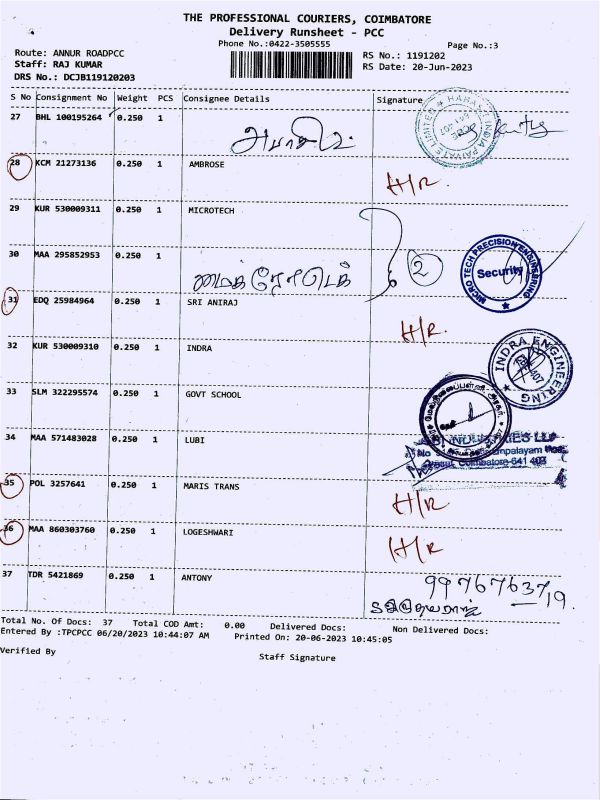 THE PROFESSIONAL COURIERS, COIMBATORE
Delivery Runsheet - PCC
Phone No.:0422-3505555
Page No.:3
Route: ANNUR ROADPCC
RS No.: 1191202
Staff: RAJ KUMAR
RS Date: 20-Jun-2023
DRS No.: DCJB119120203
S No Consignment No Weight PCS Consignee Details Signature
27 BHL 100195264 0.250 1
28 KCM 21273136 0.250 1 AMBROSE
H/R.
29 KUR 530009311 0.250 1 MICROTECH
30 MAA 295852953 0.250 1
2
MICRO TECH PRECISION ENGINEERING
Security
31 EDQ 25984964 0.250 1 SRI ANIRAJ
H/R.
32 KUR 530009310 0.250 1 INDRA
INDRA ENGINEERING
33 SLM 322295574 0.250 1 GOVT SCHOOL
34 MAA 571483028 0.250 1 LUBI
Coimbatore-641
35 POL 3257641 0.250 1 MARIS TRANS
H/R
36 MAA 860303760 0.250 1 LOGESHWARI
H/R
37 TDR 5421869 0.250 1 ANTONY
Total No. Of Docs: 37 Total COD Amt: 0.00 Delivered Docs: Non Delivered Docs:
Entered By :TPCPCC 06/20/2023 10:44:07 AM Printed On: 20-06-2023 10:45:05
Verified By
Staff Signature